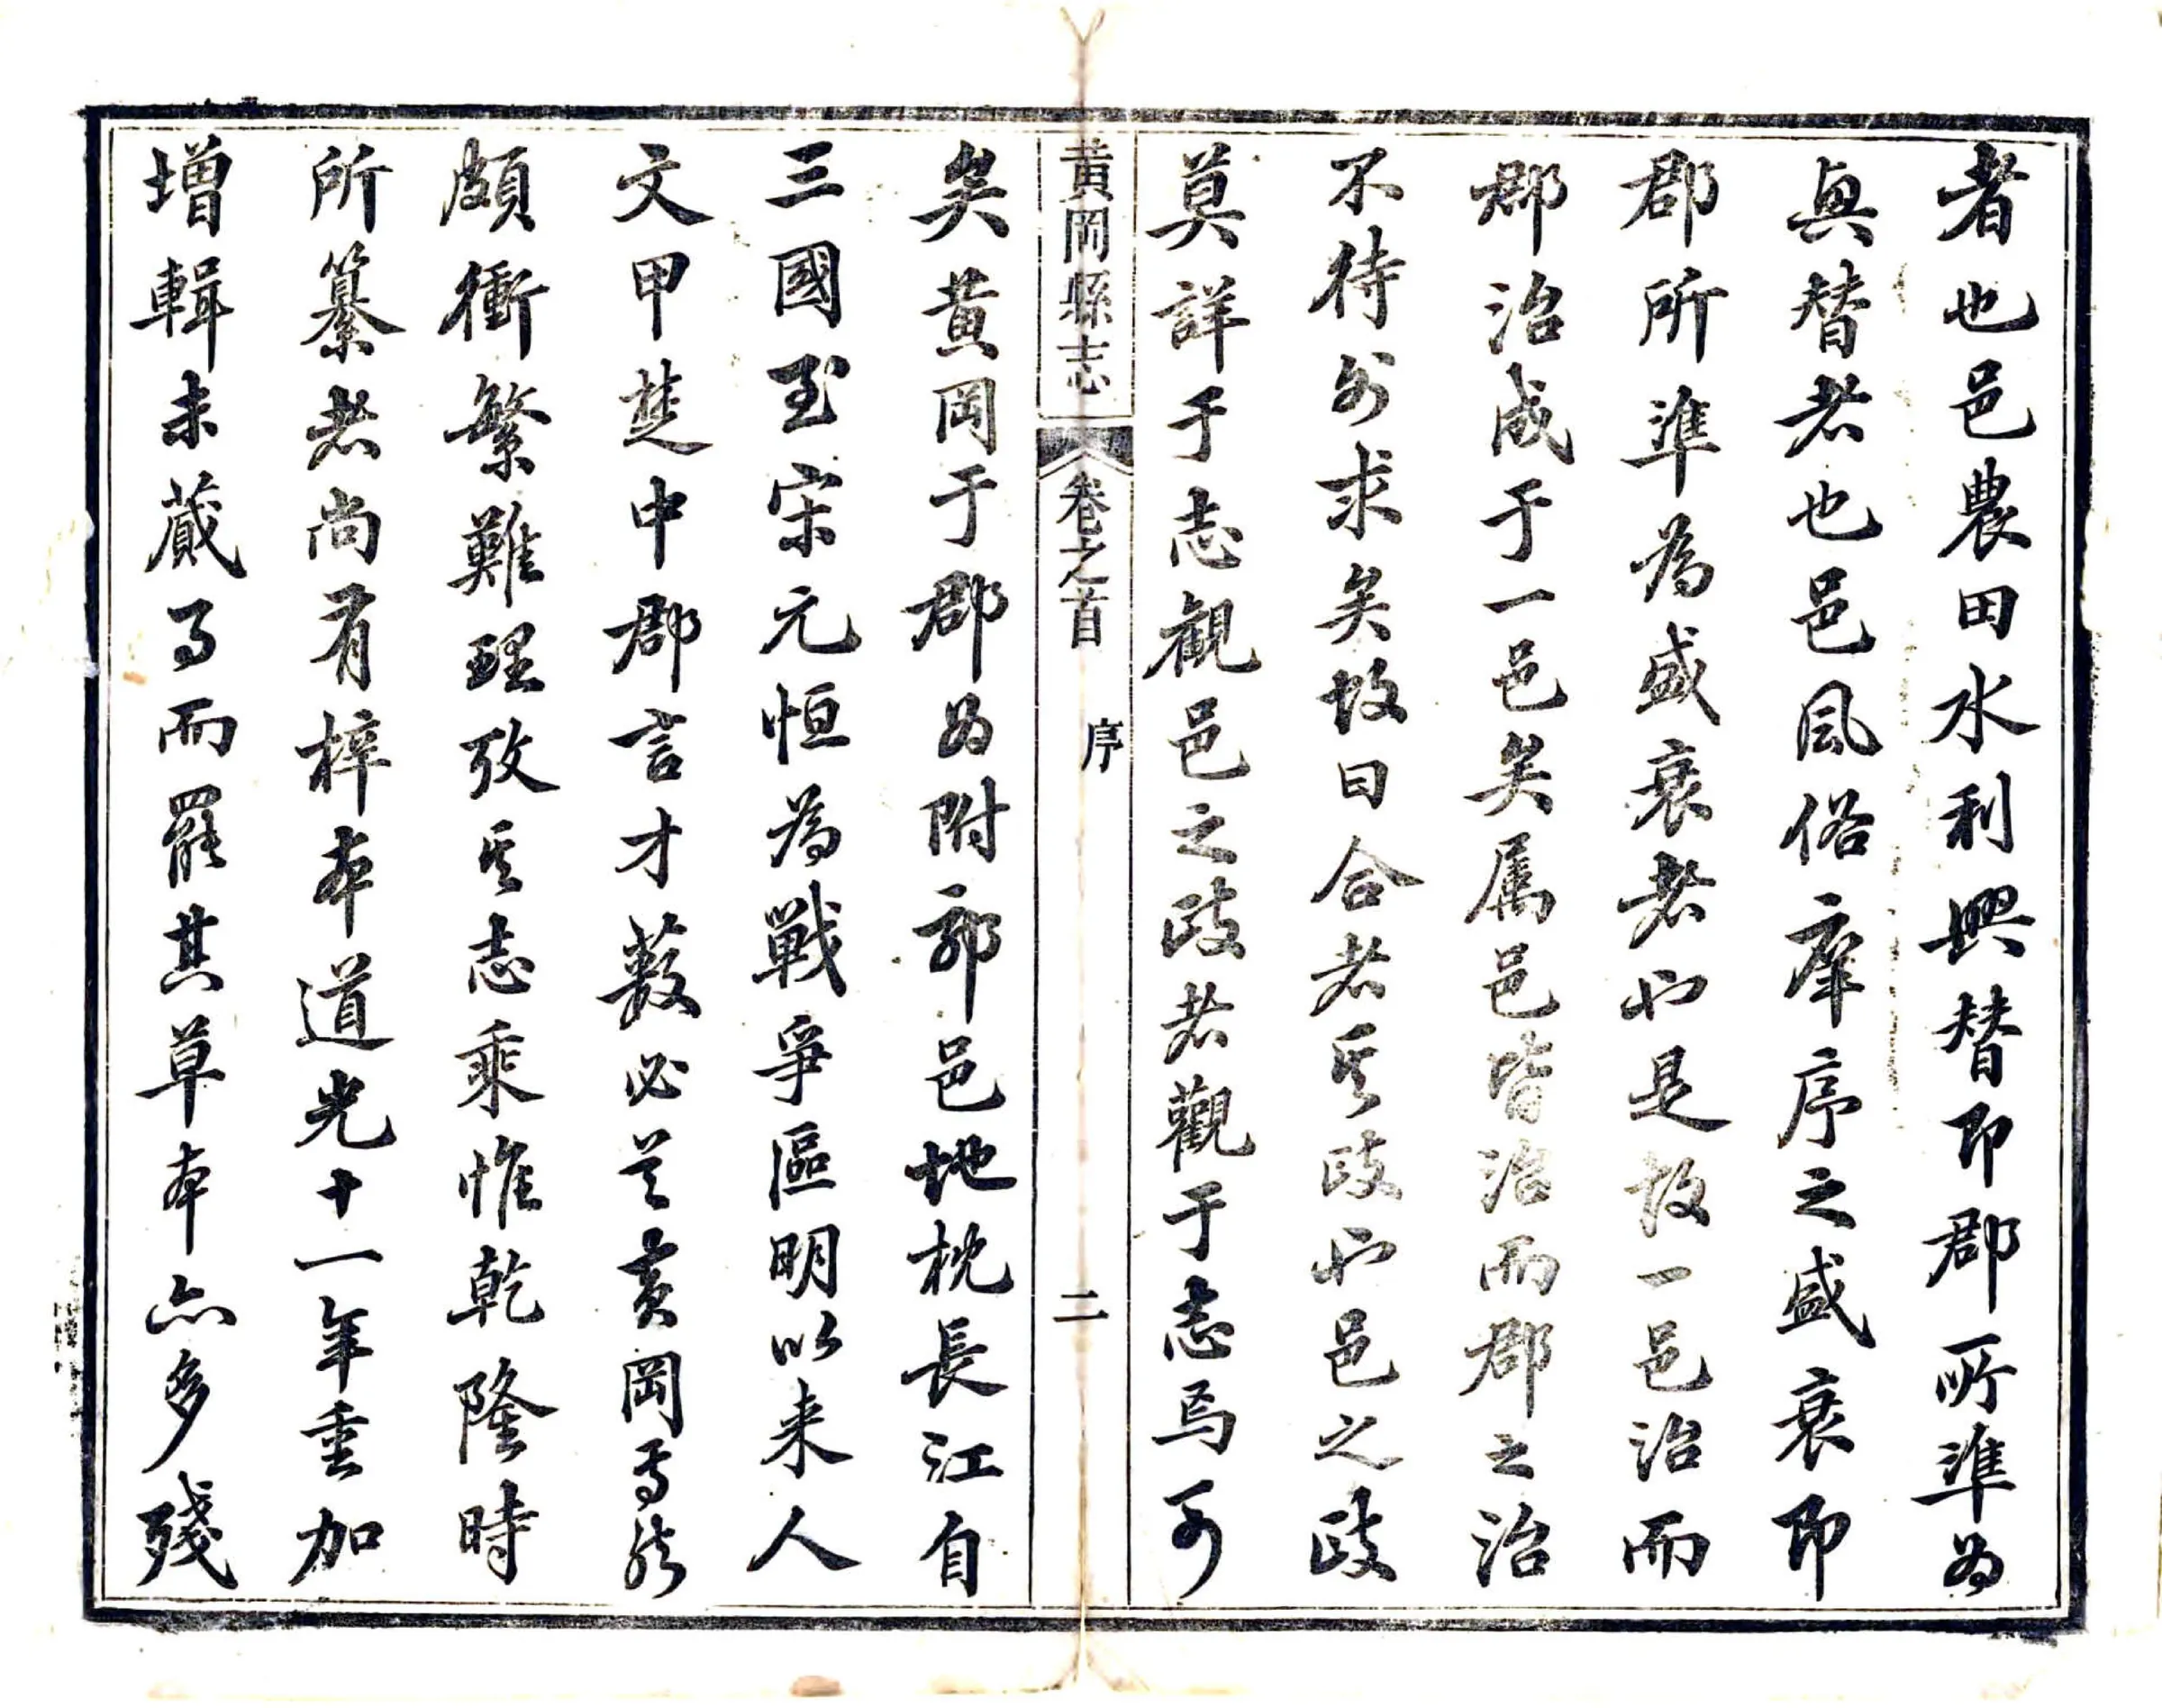 者也邑農田水利興替即郡所準為
興替者也邑風俗庠序之盛衰即
郡所準為盛衰者也是故一邑治而
郡治成于一邑矣属邑皆治而郡之治
不待外求矣故曰合者其政也邑之政
莫詳于志觀邑之政者觀于志焉可
黃岡縣志
卷之首
序
二
矣黃岡于郡為附郭邑地枕長江自
三國至宋元恒為戰爭區明以来人
文甲楚中郡言才藪必首黃岡焉然
頗衝繁難理攷其志乘惟乾隆時
所纂者尚有梓本道光十一年重加
增輯未蕆事而罷其草本亦多殘